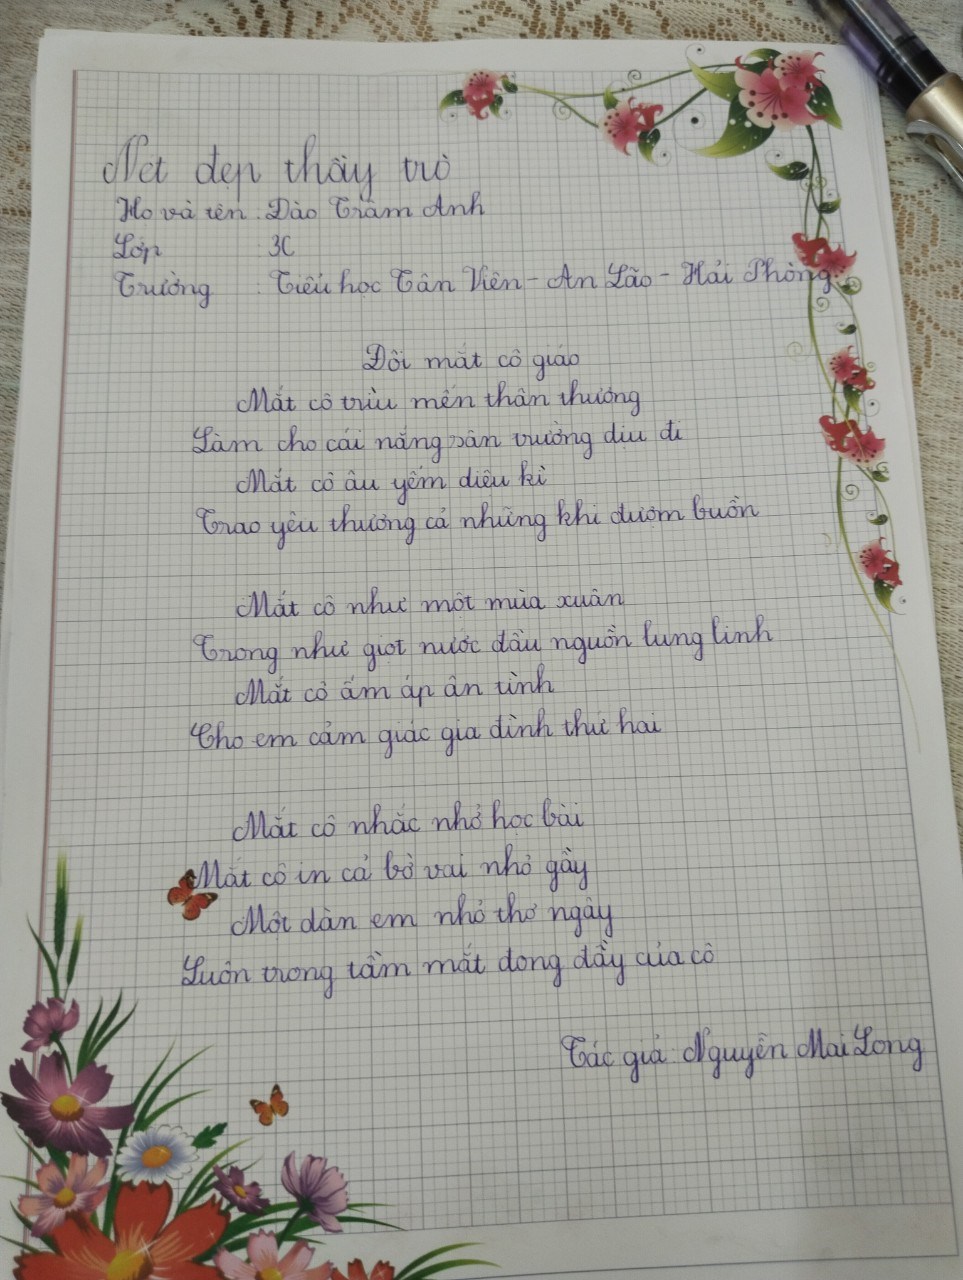 Nét đẹp thầy trò
Họ và tên: Đào Trâm Anh
Lớp : 3C
Trường : Tiểu học Tân Viên - An Lão - Hải Phòng
Đôi mắt cô giáo
Mắt cô trìu mến thân thương
Làm cho cái nắng sân trường dịu đi
Mắt cô âu yếm diệu kì
Trao yêu thương cả những khi đượm buồn
Mắt cô như một mùa xuân
Trong như giọt nước đầu nguồn lung linh
Mắt cô ấm áp ân tình
Cho em cảm giác gia đình thứ hai
Mắt cô nhắc nhở học bài
Mắt cô in cả bờ vai nhỏ gầy
Một đàn em nhỏ thơ ngây
Luôn trong tầm mắt dong đầy của cô
Tác giả: Nguyễn Mai Long